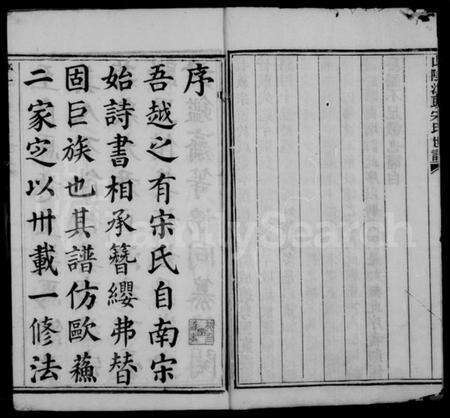 山陰江頭宋氏世譜
序
吾越之有宋氏自南宋
始詩書相承簪纓弗替
固巨族也其譜仿歐蘓
二家定以卅載一修法
FamilySearch